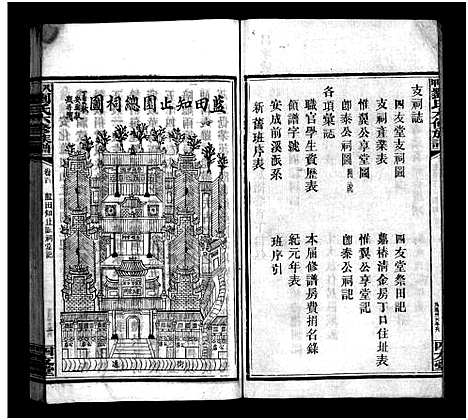 支祠誌
四友堂支祠圖
四友堂祭田記
支祠產業表
嘉椿清金房丁口住址表
惟巽公享堂圖
惟巽公享堂記
即泰公祠圖
即泰公祠記
各項彙表
職官學生資歷表
本届修譜房費捐名錄
領譜字號
紀元年表
安成前溪派系
班序引
新舊班序表
四友堂
藍田知止園總祠圖
卷首
藍田知止園祠堂記
四友堂